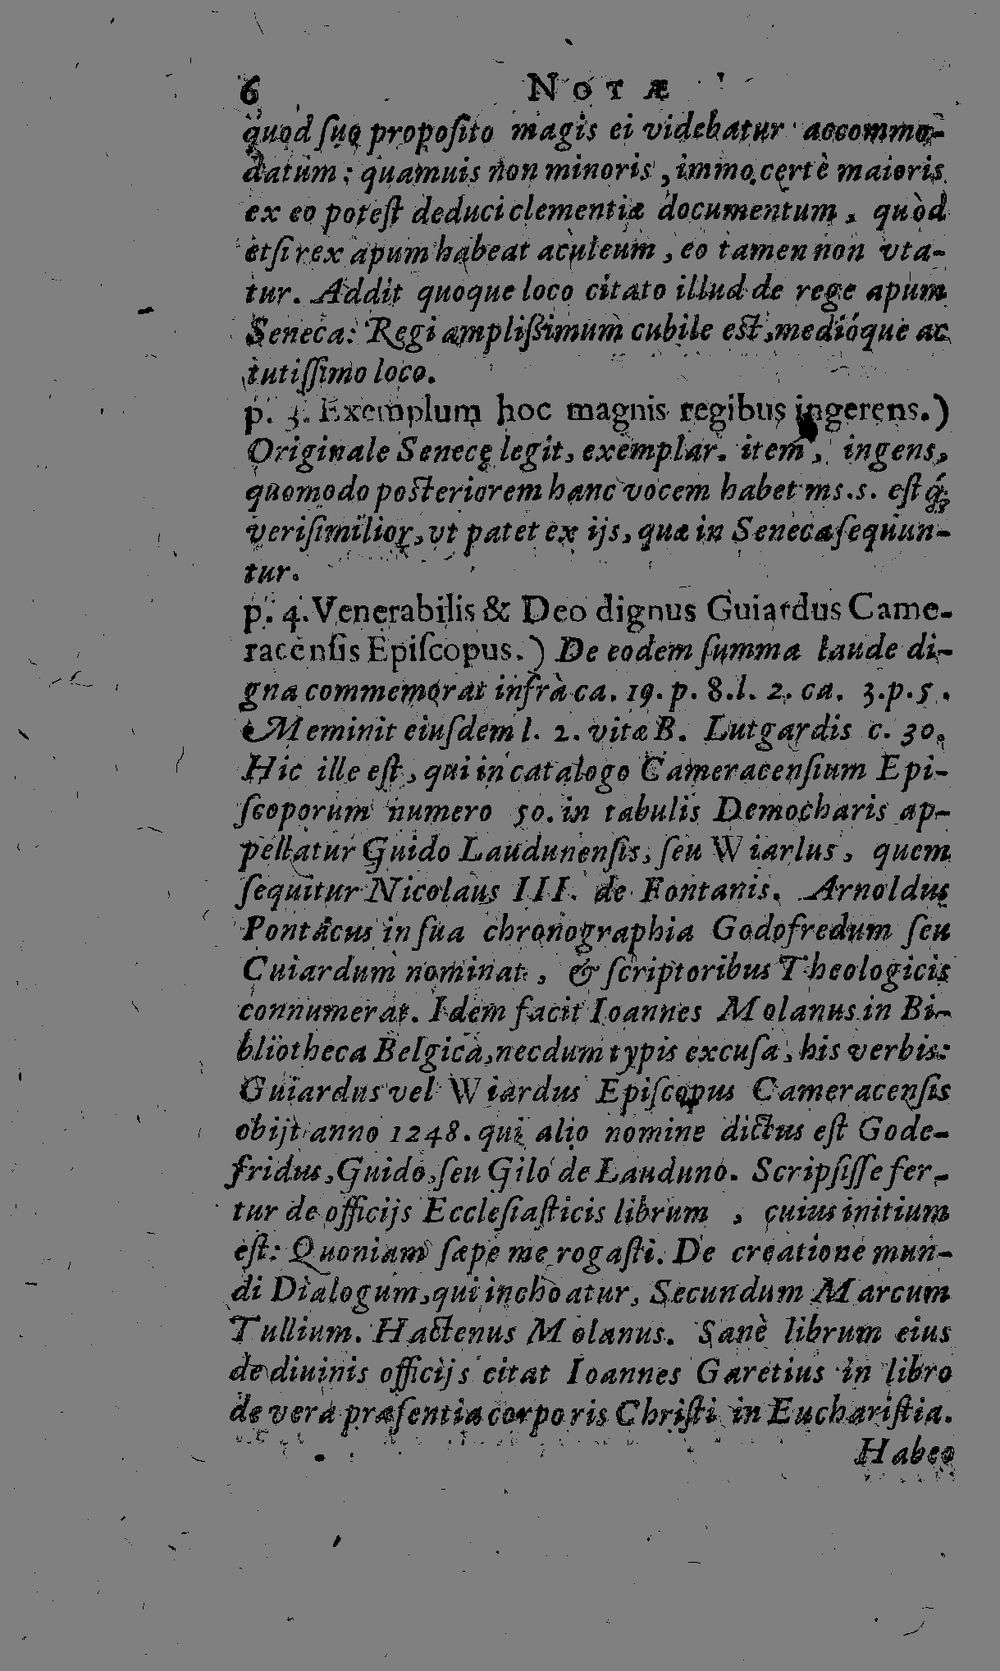 6 NOTÆ
quod ſuo propoſito magis ei videbatur accommo-
datum: quamuis non minoris, immo certè maioris
ex eo poteſt deduci clementiæ documentum, quòd
etſi rex apum habeat aculeum, eo tamen non vta-
tur. Addit quoque loco citato illud de rege apum
Seneca: Regi ampliſsimum cubile est, medióque ac
tutiſſimo loco.
p. 3. Exemplum hoc magnis regibus ingerens.)
Originale Senecę legit, exemplar. item, ingens,
quomodo posteriorem hanc vocem habet ms.s. eſt q́;
veriſimilior, vt patet ex ijs, quæ in Seneca ſequun-
tur.
p. 4. Venerabilis & Deo dignus Guiardus Came-
racenſis Epiſcopus.) De eodem ſumma laude di-
gna commemorat infrà ca. 19. p. 8. l. 2. ca. 3. p. 5.
Meminit eiuſdem l. 2. vitæ B. Lutgardis c. 30.
Hic ille eſt, qui in catalogo Cameracenſium Epi-
ſcoporum numero 50. in tabulis Democharis ap-
pellatur Guido Laudunenſis, ſeu Wiarlus, quem
ſequitur Nicolaus III. de Fontanis. Arnoldus
Pontacus in ſua chronographia Godofredum ſeu
Cuiardum nominat, & ſcriptoribus Theologicis
connumerat. Idem facit Ioannes Molanus in Bi-
bliotheca Belgica, necdum typis excuſa, his verbis:
Guiardus vel Wiardus Epiſcopus Cameracenſis
obijt anno 1248. qui alio nomine dictus eſt Gode-
fridus, Guido, ſeu Gilo de Lauduno. Scripſiſſe fer-
tur de officijs Eccleſiaſticis librum, cuius initium
eſt: Quoniam ſæpe me rogaſti. De creatione mun-
di Dialogum, qui inchoatur, Secundum Marcum
Tullium. Hactenus Molanus. Sanè librum eius
de diuinis officijs citat Ioannes Garetius in libro
de vera præſentia corporis Chriſti in Euchariſtia.
Habeo